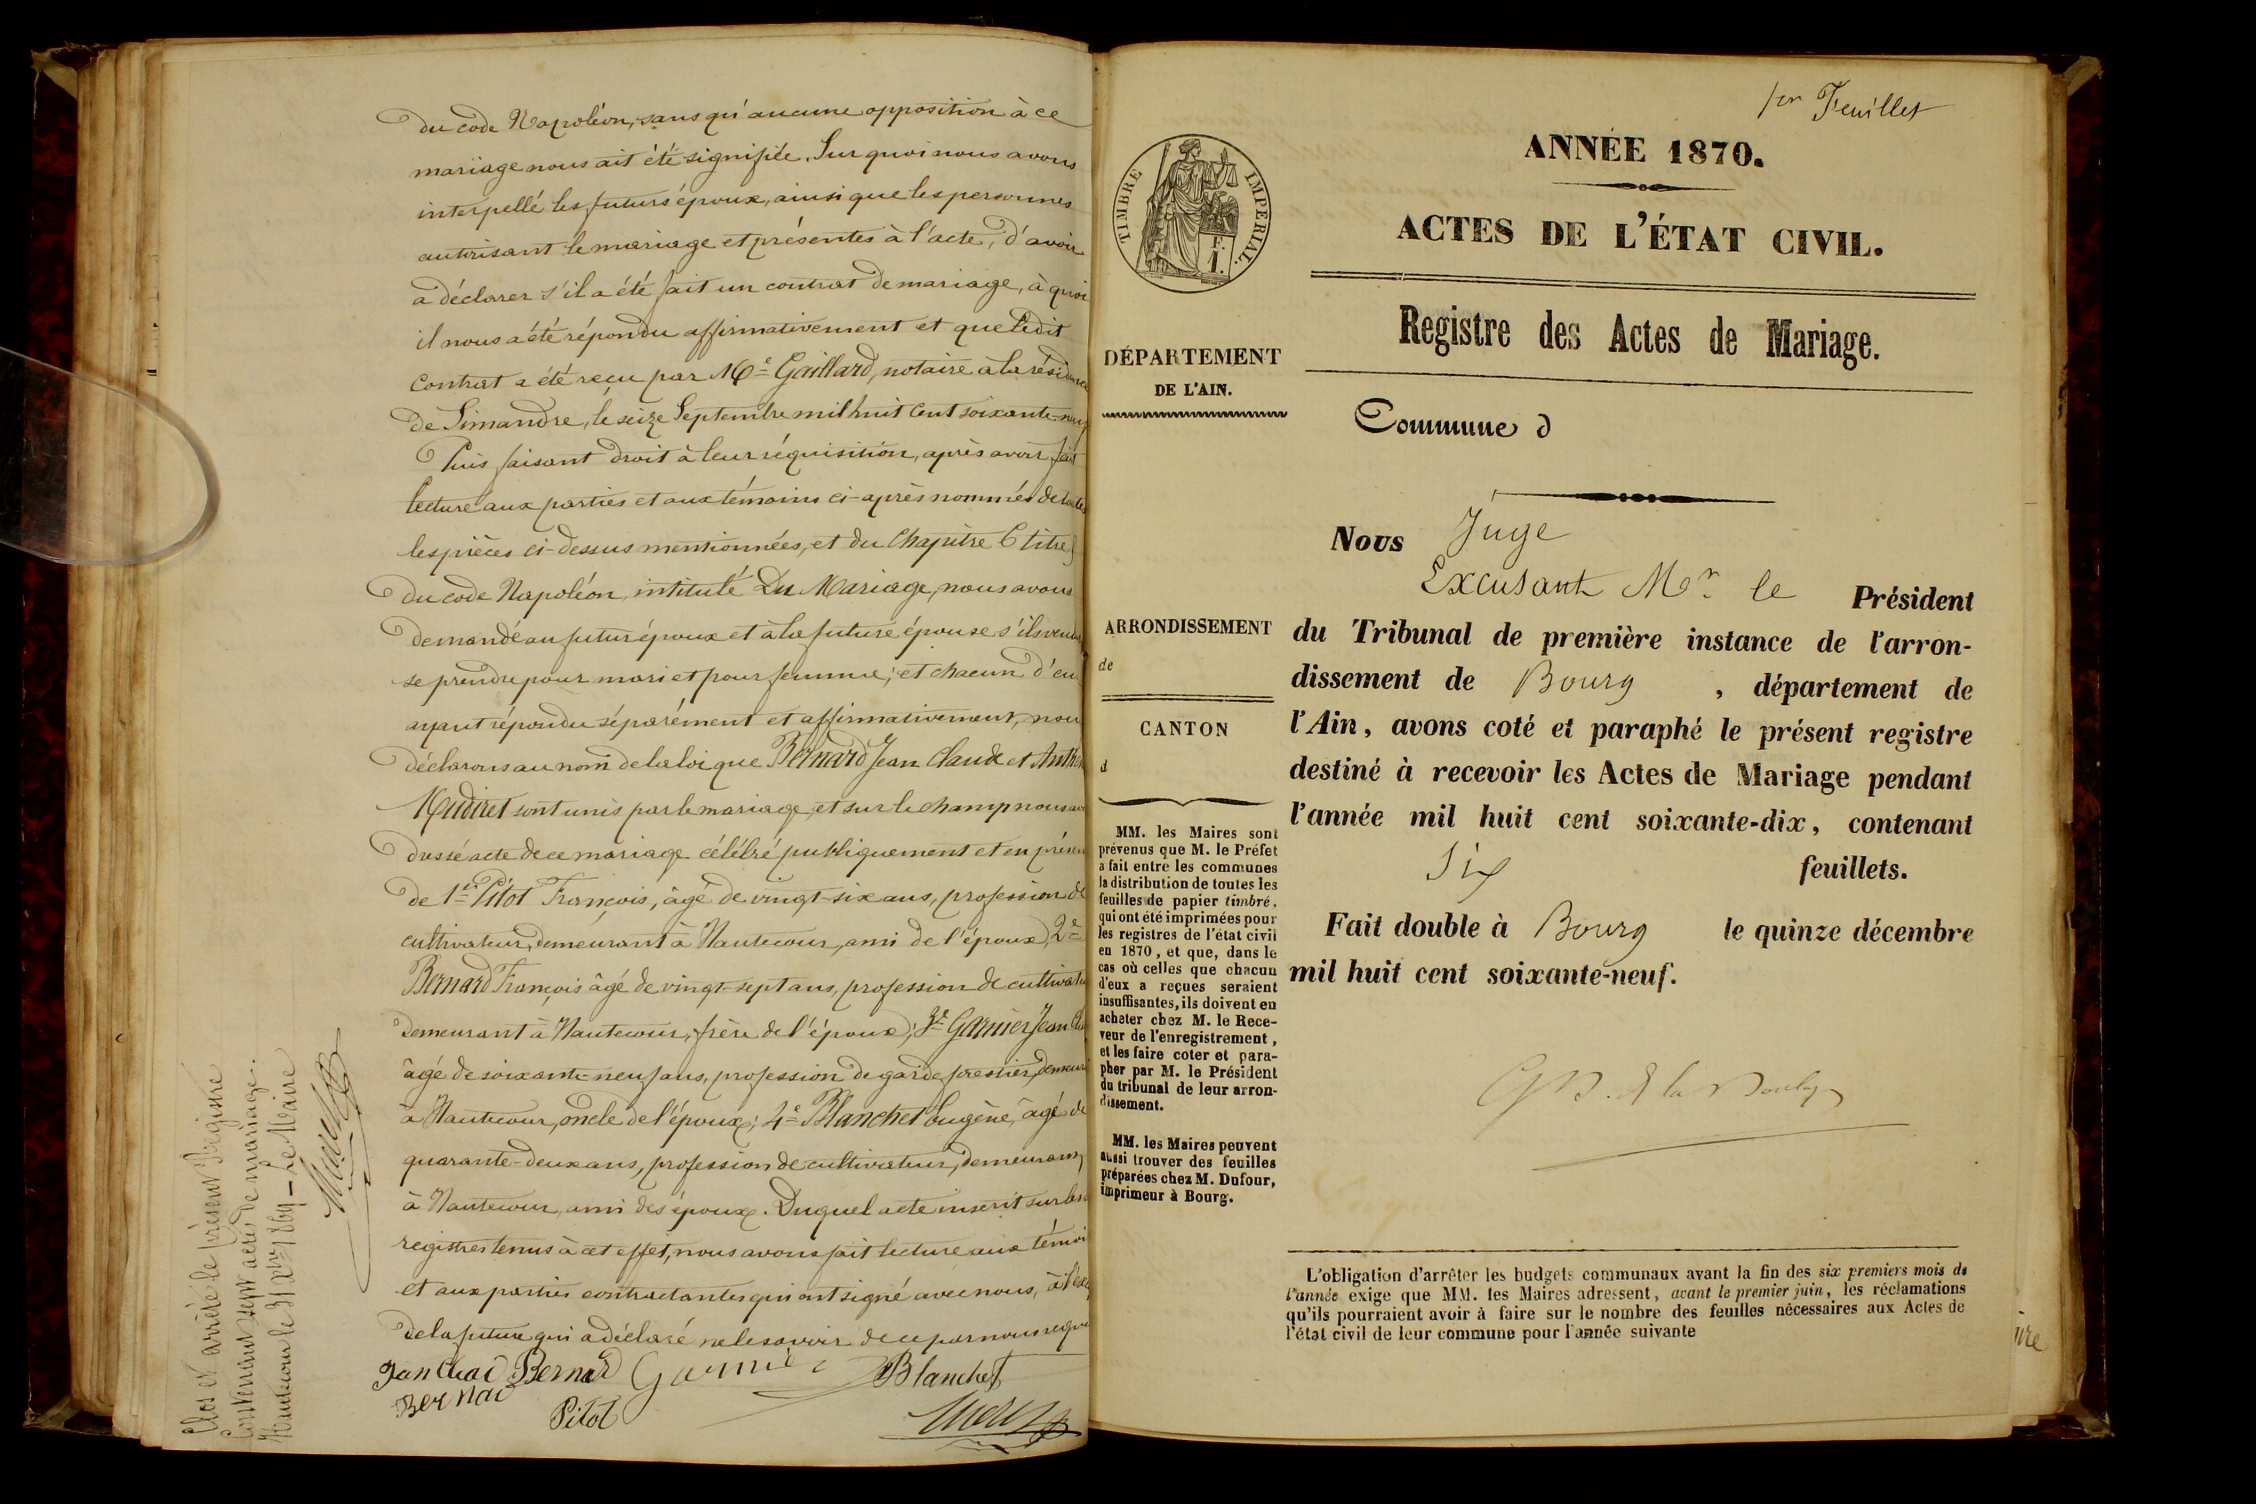 du code Napoléon, sans qu'aucune opposition à ce
mariage nous ait été signifiée. Sur quoi nous avons
interpellé les futurs époux, ainsi que les personnes
autorisant le mariage et présentes à l'acte, d'avoir
a déclarer s'il a été fait un contrat de mariage, à quoi
il nous a été répondu affirmativement et que ledit
contrat a été reçu par Me Gaillard, notaire à la résidence
de Simandre, le seize Septembre mil huit cent soixante-neuf
Puis faisant droit à leur réquisition, après avoir fait
lecture aux parties et aux témoins ci-après nommés de toutes
les pièces ci-dessus mentionnées, et du Chapitre 6 titre 5
du code Napoléon, intitulé Du Mariage, nous avons
demandé au futur époux et à la future épouse s'ils veulent
se prendre pour mari et pour femme; et chacun d'eux
ayant répondu séparément et affirmativement, nous
déclarons au nom de la loi que Bernard Jean Claude et
Mudiret sont unis par le mariage, et sur le champ nous av
dressé acte de ce mariage célébré publiquement et en présen
de 1er Pitot François, âgé de vingt-six ans, profession de
cultivateur, demeurant à Hautecour, ami de l'époux; 2e
Bernard François âgé de vingt-sept ans, profession de cultivateu
demeurant à Hautecour, frère de l'époux; 3e Garnier Jean Cla
âgé de soixante-neuf ans, profession de garde forestier, demeur
à Hautecour, oncle de l'époux; 4e Blanchet Eugène, âgé de
quarante-deux ans, profession de cultivateur, demeurant
à Hautecour, ami des époux. Duquel acte inscrit sur les
registres tenus à cet effet, nous avons fait lecture aux témoi
et aux parties contractantes qui ont signé avec nous, à l'exc
de la future qui a déclaré ne le savoir de ce par nous requi
Jan Clad Bernard Garnier Blanchet
Bernad Pitot
Clos et arrêté le présent Registre
Contenant sept actes de mariage.
Hautecour le 31 Xbre 1869 – Le Maire
1er Feuillet
ANNÉE 1870.
ACTES DE L'ÉTAT CIVIL.
Registre des Actes de Mariage.
Commune d
TIMBRE IMPERIAL.
F. I.
DÉPARTEMENT
DE L'AIN.
ARRONDISSEMENT
de
CANTON
d
MM. les Maires sont
prévenus que M. le Préfet
a fait entre les communes
la distribution de toutes les
feuilles de papier timbré,
qui ont été imprimées pour
les registres de l'état civil
en 1870, et que, dans le
cas où celles que chacun
d'eux a reçues seraient
insuffisantes, ils doivent en
acheter chez M. le Rece-
veur de l'enregistrement,
et les faire coter et para-
pher par M. le Président
du tribunal de leur arron-
dissement.
MM. les Maires peuvent
aussi trouver des feuilles
préparées chez M. Dufour,
imprimeur à Bourg.
Nous Juge
Excusant Mr le Président
du Tribunal de première instance de l'arron-
dissement de Bourg, département de
l'Ain, avons coté et paraphé le présent registre
destiné à recevoir les Actes de Mariage pendant
l'année mil huit cent soixante-dix, contenant
Six feuillets.
Fait double à Bourg le quinze décembre
mil huit cent soixante-neuf.
L'obligation d'arrêter les budgets communaux avant la fin des six premiers mois de
l'année exige que MM. les Maires adressent, avant le premier juin, les réclamations
qu'ils pourraient avoir à faire sur le nombre des feuilles nécessaires aux Actes de
l'état civil de leur commune pour l'année suivante